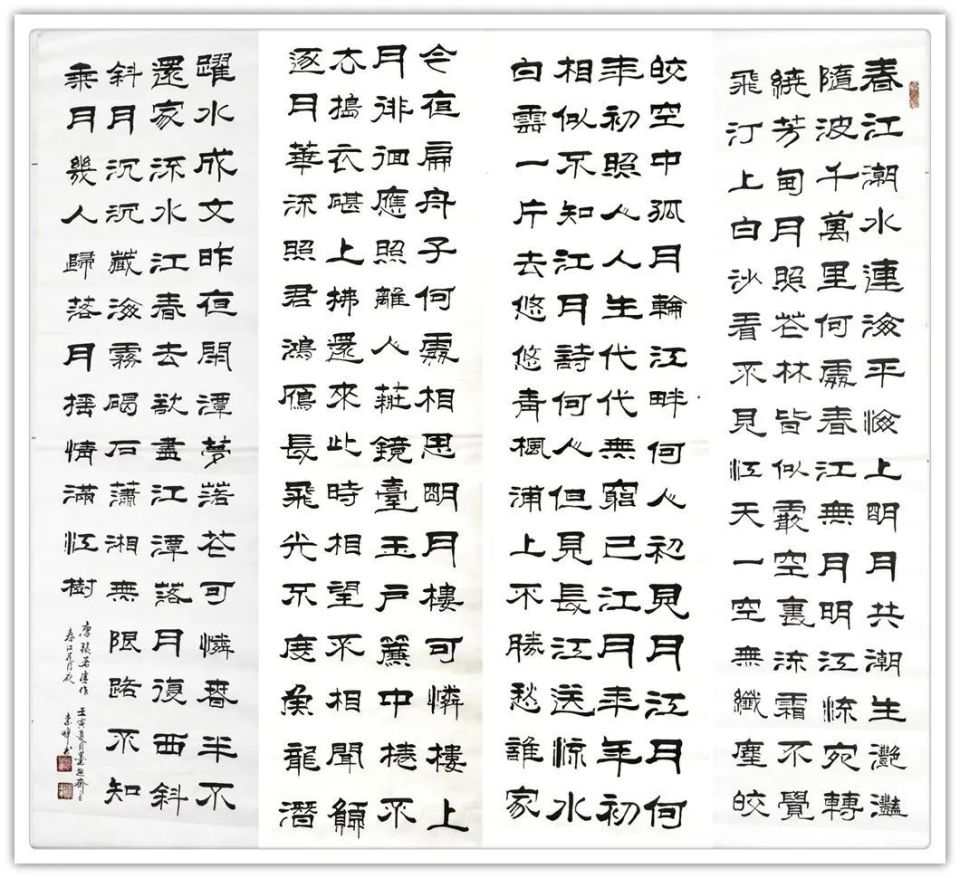 春江潮水連海平海上明月共潮生灧灩
隨波千萬里何處春江無月明江流宛轉
繞芳甸月照花林皆似霰空裏流霜不覺
飛汀上白沙看不見江天一空無纖塵皎
皎空中孤月輪江畔何人初見月江月何
年初照人人生代代無窮已江月年年初
相似不知江月詩何人但見長江送流水
白雲一片去悠悠青楓浦上不勝愁誰家
今夜扁舟子何處相思明月樓可憐樓上
月徘徊應照離人粧鏡臺玉戶簾中捲不
去搗衣碪上拂還來此時相望不相聞願
逐月華流照君鴻雁長飛光不度魚龍潛
躍水成文昨夜閑潭夢落花可憐春半不
還家流水江春去欲盡江潭落月復西斜
斜月沉沉藏海霧碣石蕭湘無限路不知
乘月幾人歸落月搖情滿江樹
唐張若虛作
春江花月夜
壬寅夏月墨